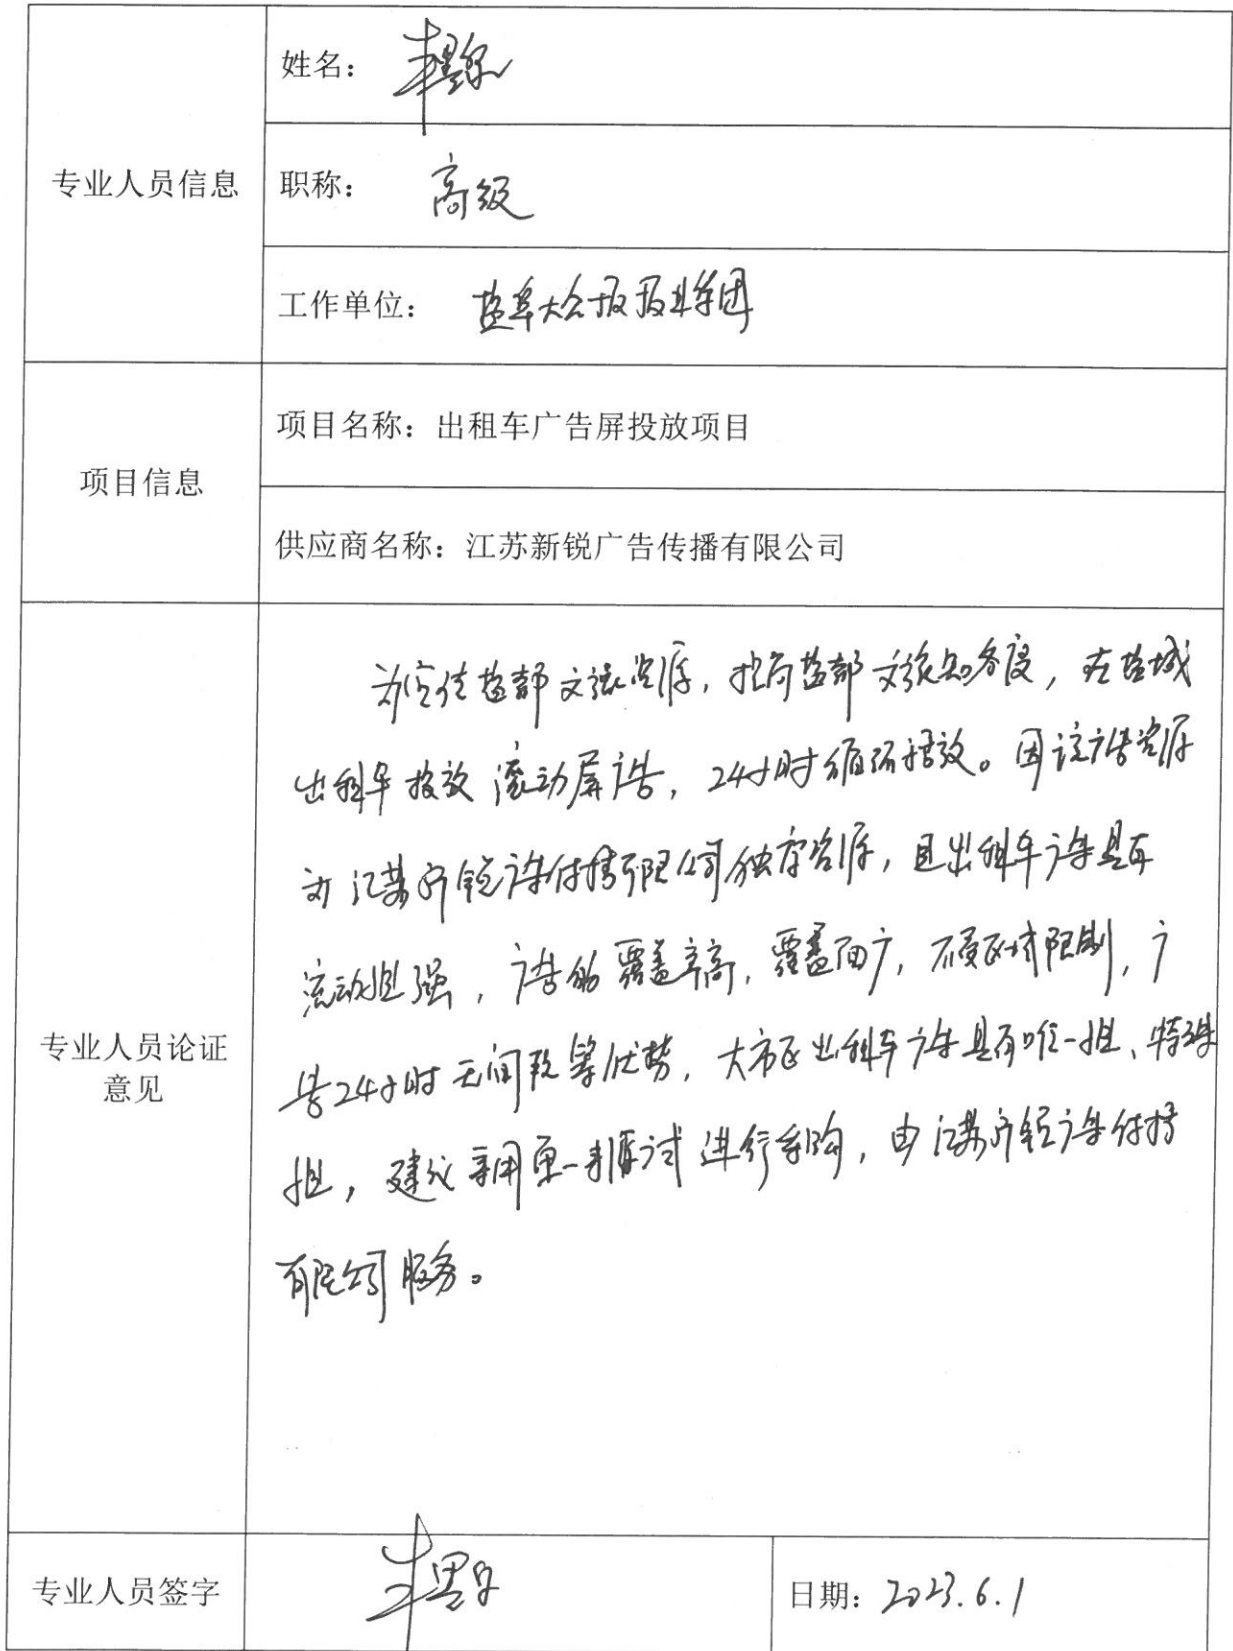 姓名：
专业人员信息
职称： 高级
工作单位： 盐阜大众报报业集团
项目信息
项目名称：出租车广告屏投放项目
供应商名称：江苏新锐广告传播有限公司
为宣传盐都文旅资源，提高盐都文旅知名度，在盐城
出租车投放滚动屏广告，24小时循环播放。因该广告资源
为江苏新锐广告传播有限公司独有资源，且出租车广告具有
流动性强，广告的覆盖率高，覆盖面广，不受区域限制，广
告24小时无间段等优势，大市区出租车广告具有唯一性、特殊
性，建议采用单一来源方式进行采购，由江苏新锐广告传播
有限公司服务。
专业人员论证
意见
专业人员签字
日期：2023.6.1